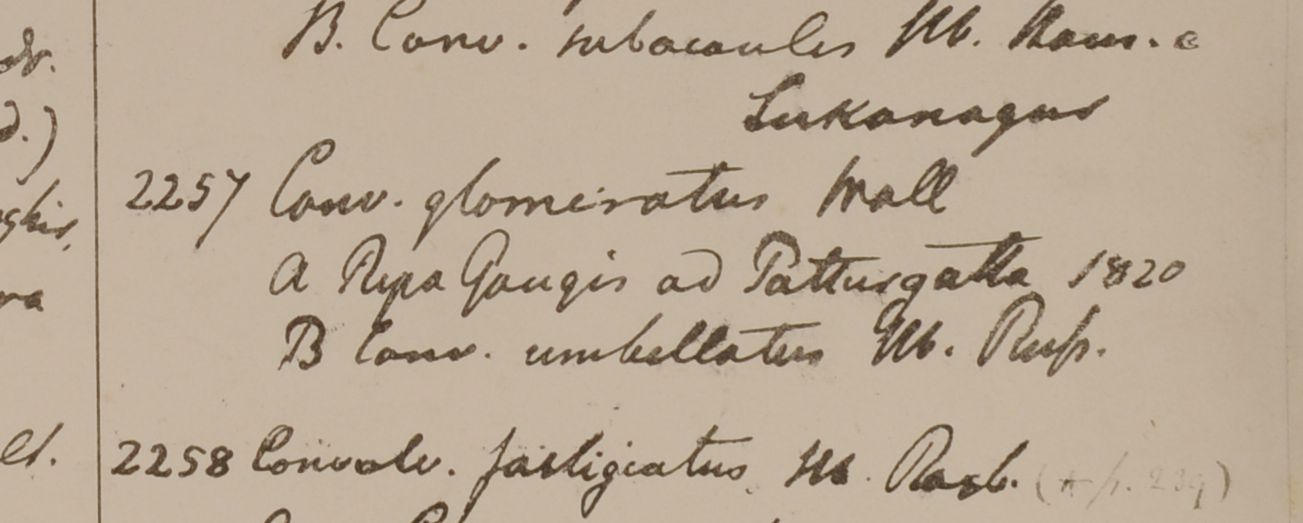 dr.
B. Conv. subacaulis Hb. Ham. e
Sukanagur
d.)
2257 Conv. glomeratus Wall
ghir,
A Ripa Gangis ad Patturgatta 1820
ra
B Conv. umbellatus Hb. Russ.
et. 2258 Convolv. fastigiatus Hb. Roxb. (+ p. 239)